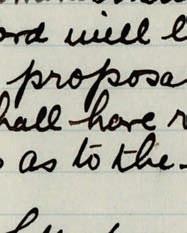 ord will
proposa
hall have
as to the